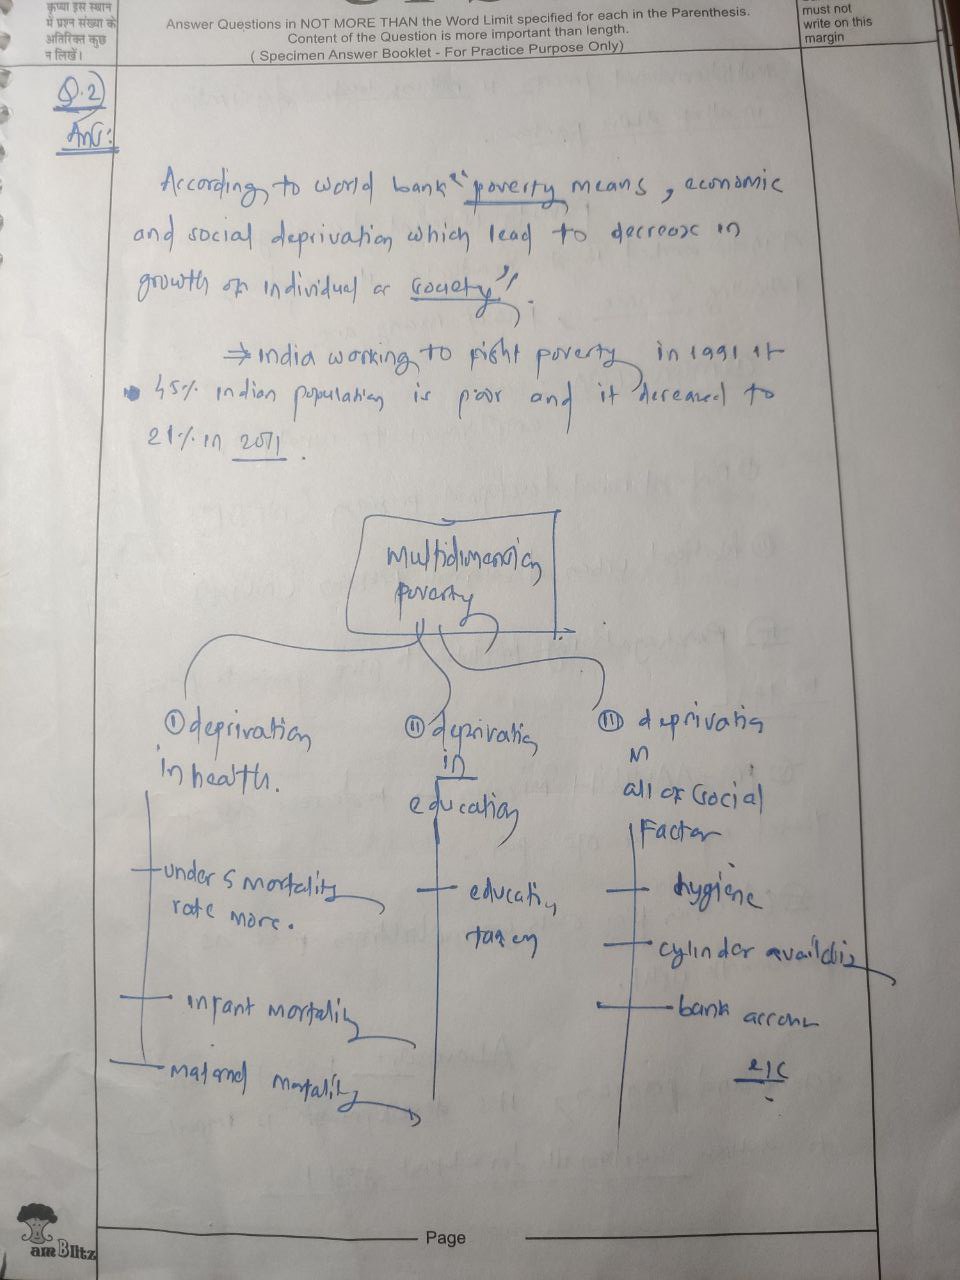 कृप्या इस स्थान
में प्रश्न संख्या के
अतिरिक्त कुछ
न लिखें।
Answer Questions in NOT MORE THAN the Word Limit specified for each in the Parenthesis.
Content of the Question is more important than length.
( Specimen Answer Booklet - For Practice Purpose Only)
must not
write on this
margin
Q.2)
Ans:
According to world bank "poverty means, economic
and social deprivation which lead to decrease in
growth of individual or society".
⇒ India working to fight poverty in 1991 it
45% indian population is poor and it decreaced to
21% in 2011.
Multidimension
poverty
(I) deprivation
in health.
under 5 mortality
rate more.
infant mortality
maternal mortality
(II) deprivation
in
education
education
taken
(III) deprivation
in
all of social
Factor
hygiene
cylinder
bank account
etc
Page
am Blitz